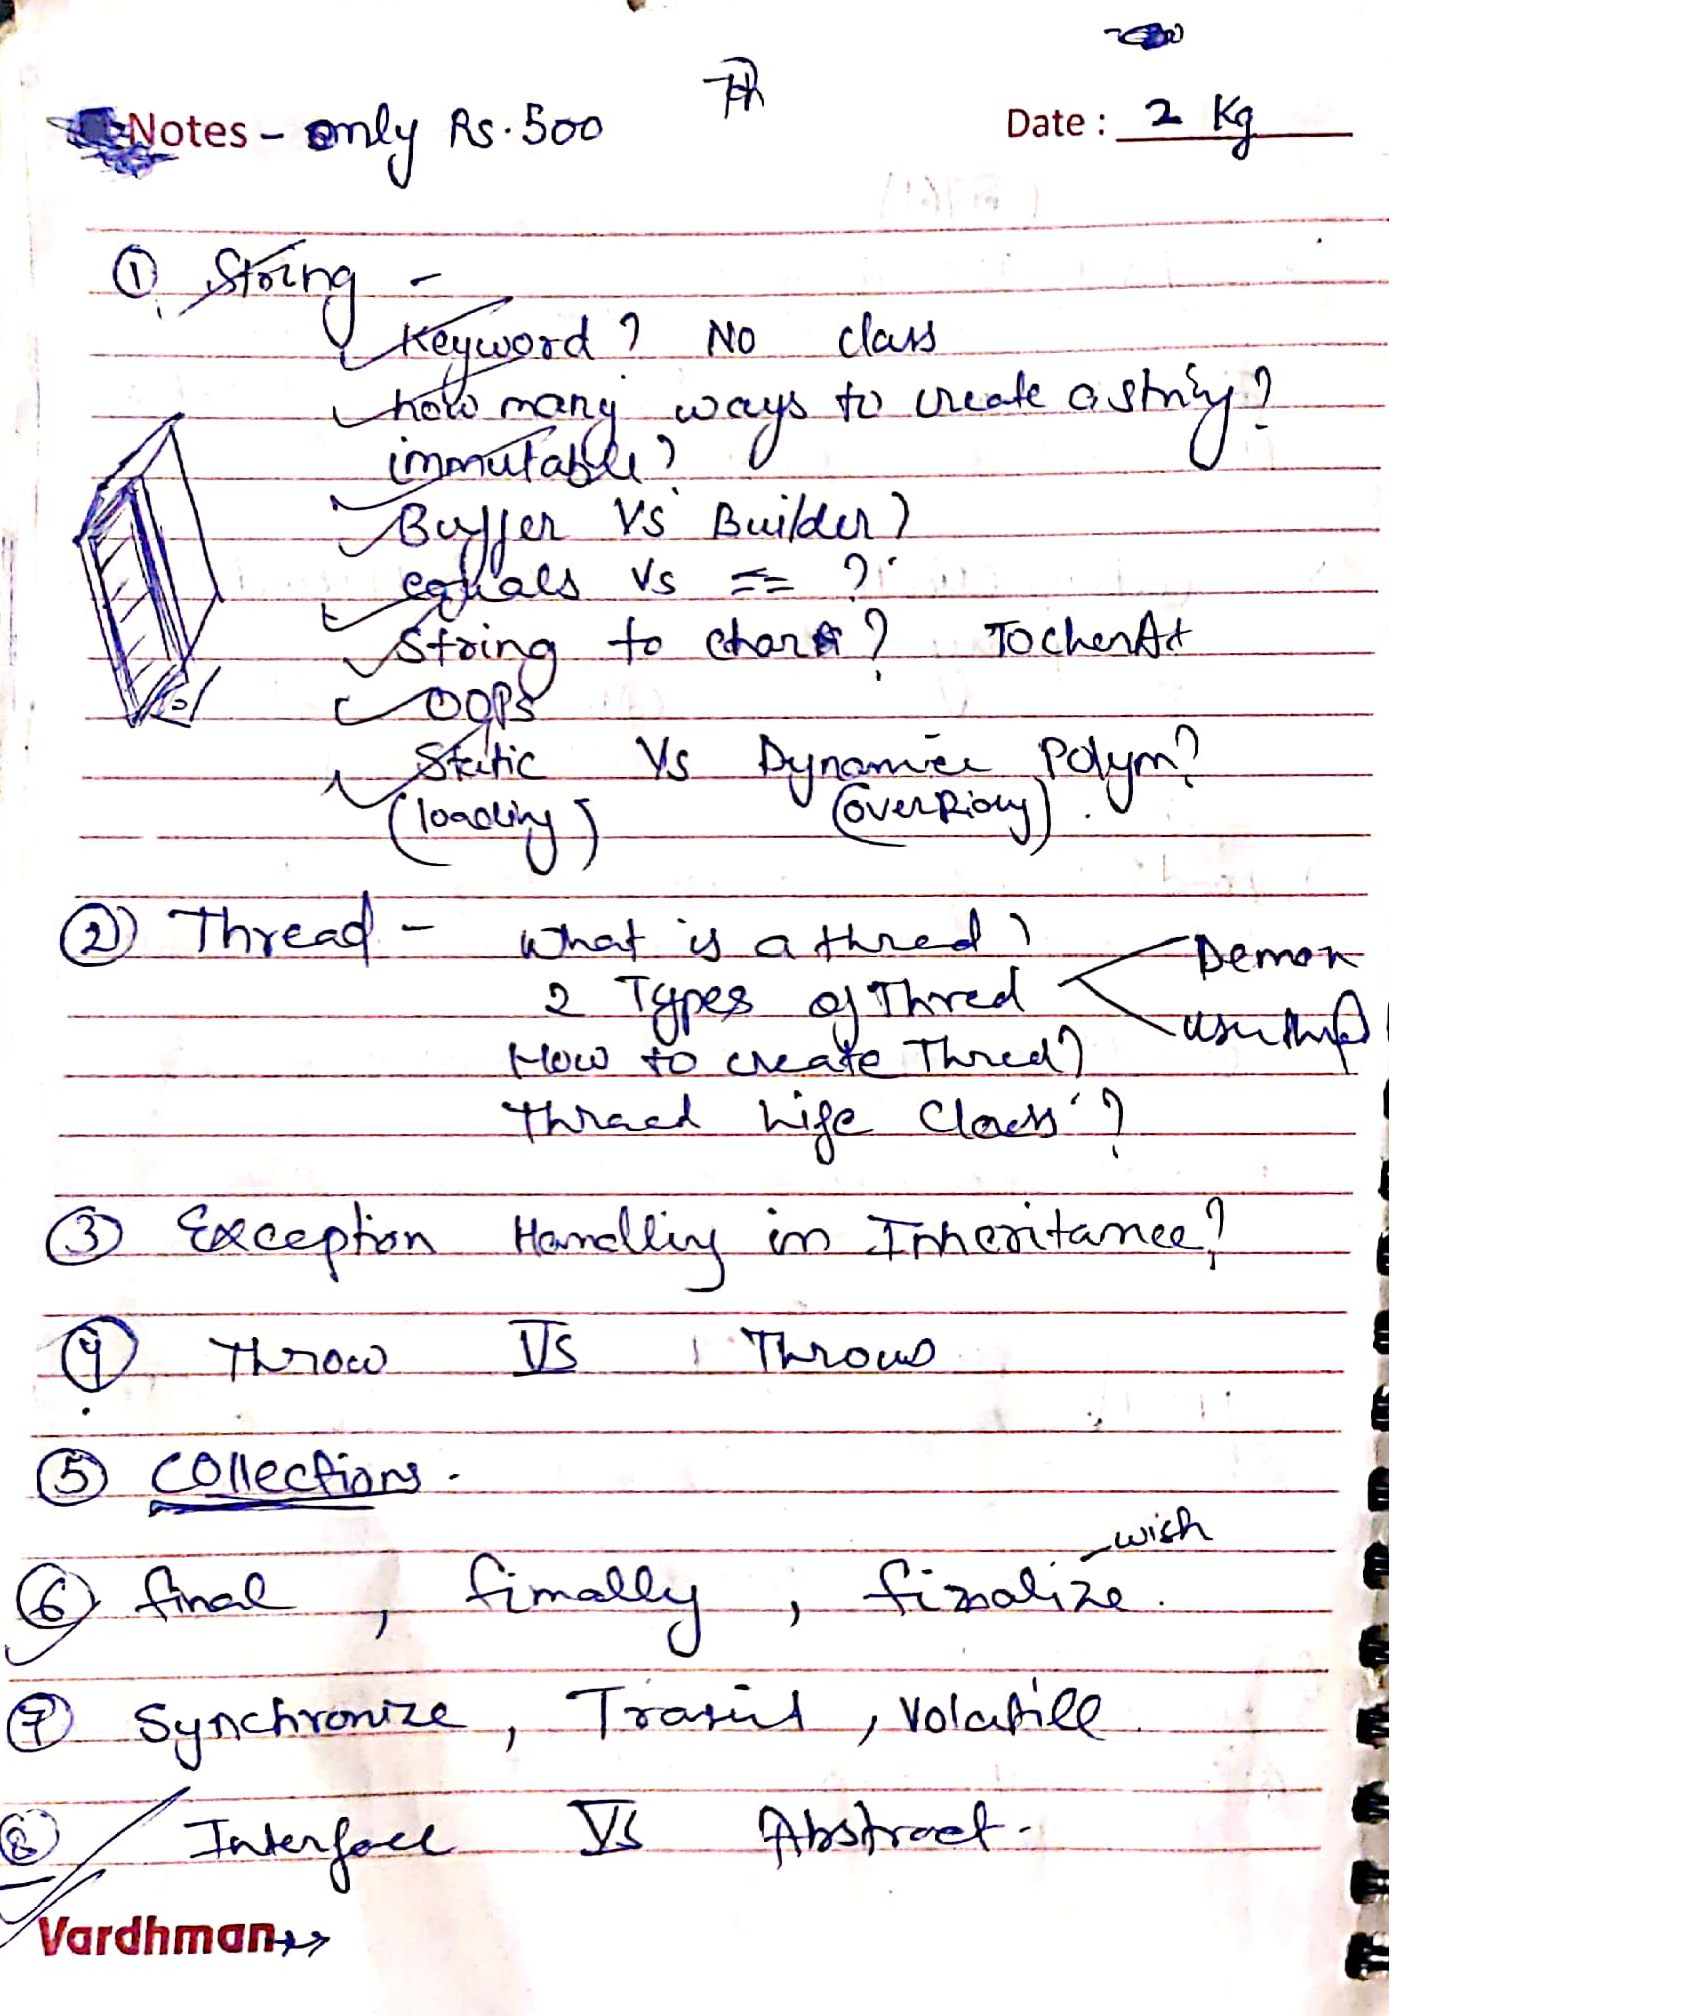 Notes - only Rs. 500
Date : 2 Kg
① String -
Keyword ? NO class
how many ways to create a string?
immutable?
Buffer Vs Builder?
equals Vs == ?
String to char ? TocherAt
OOPS
Static Vs Dynamic Polym?
(loading) (overRiding).
② Thread - what is a thred ?
Demon
2 Types of Thred
How to create Thred?
Thread Life Class ?
③ Exception Handling in Inheritance?
④ Throw Vs Throws
⑤ Collections.
wish
⑥ final , finally , finalize.
⑦ Synchronize , , Volatile
⑧ Interface Vs Abstract.
Vardhman